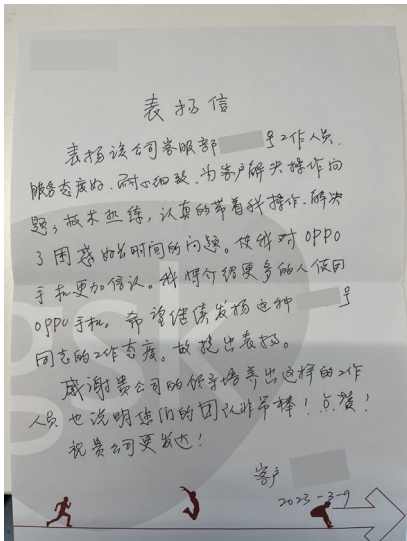 表扬信
表扬该公司客服部 号工作人员.
服务态度好.耐心细致.为客户解决操作问
题,技术熟练,认真的带着我操作.解决
了困惑好长时间的问题。使我对OPPO
手机更加信认。我将介绍更多的人使用
OPPO手机。希望继续发扬这种 号
同志的工作态度。故提出表扬。
感谢贵公司的领导培养出这样的工作
人员也说明您们的团队非常棒!点赞!
祝贵公司更发达!
客户
2023-3-9
gsk